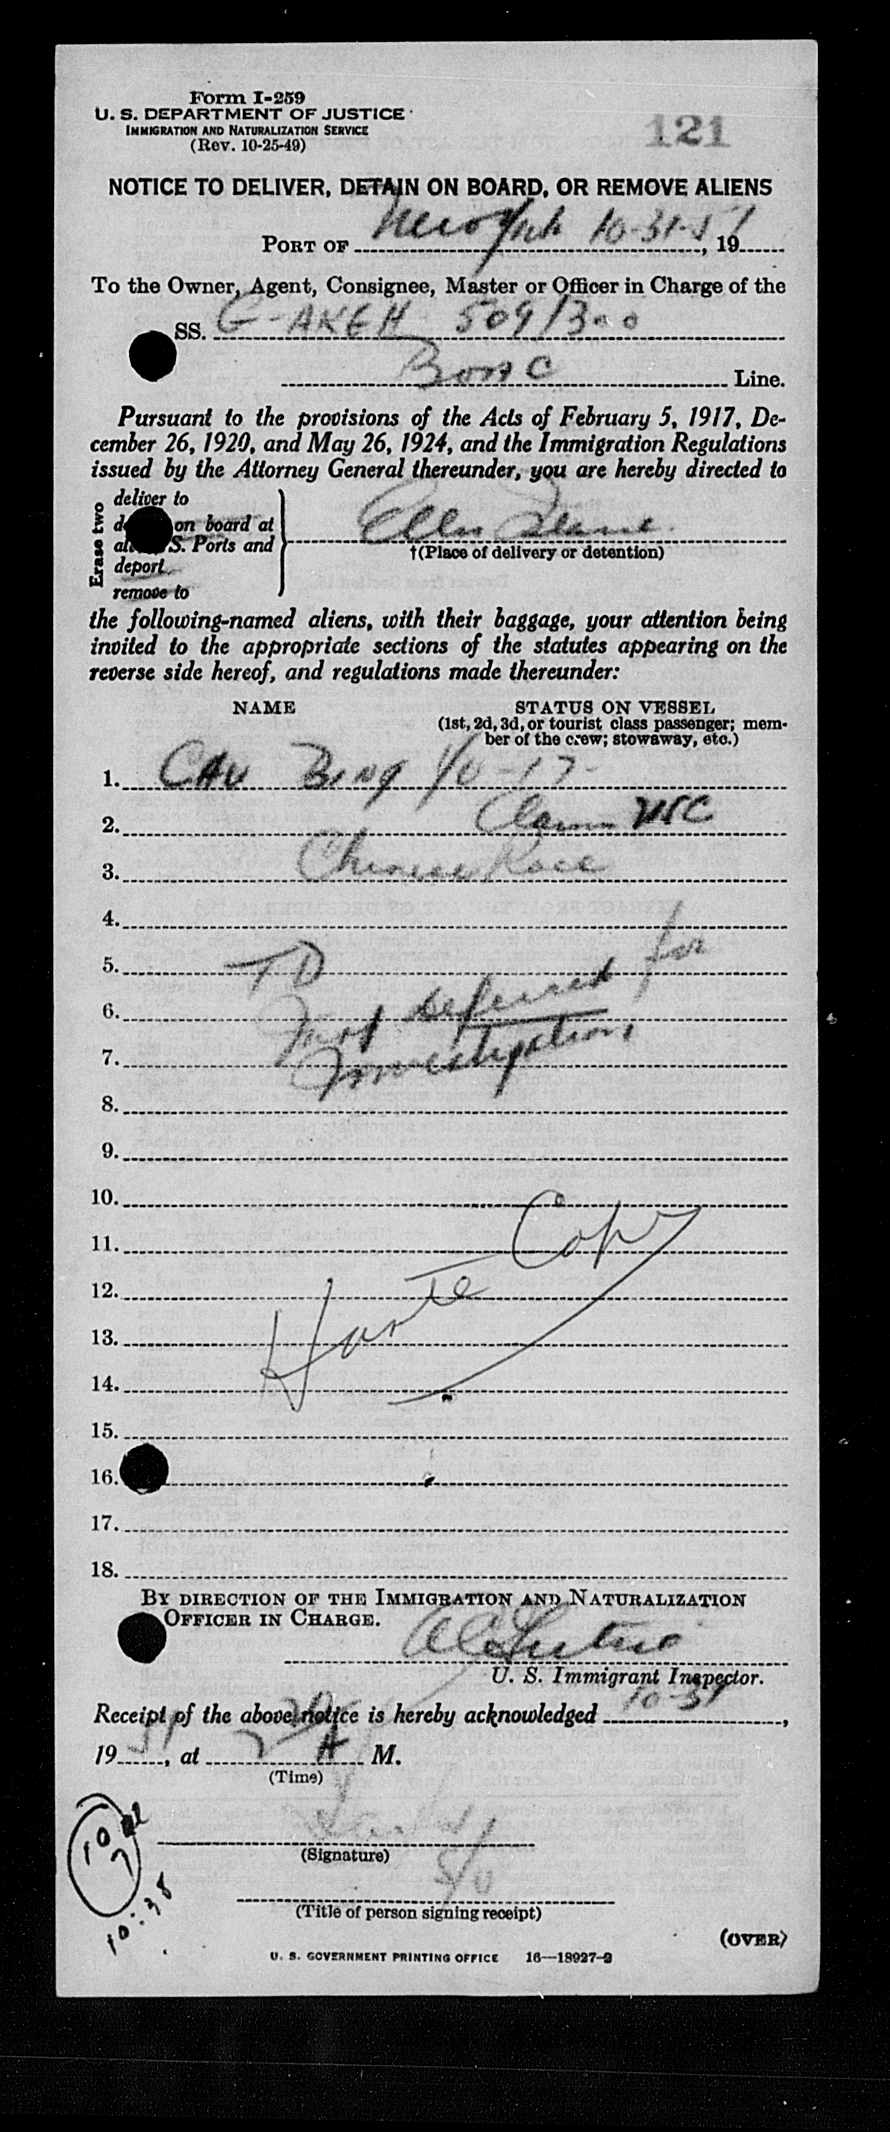 Form I-259
U. S. DEPARTMENT OF JUSTICE
IMMIGRATION AND NATURALIZATION SERVICE
(Rev. 10-25-49)
121
NOTICE TO DELIVER, DETAIN ON BOARD, OR REMOVE ALIENS
PORT OF New York 10-31-51, 19
To the Owner, Agent, Consignee, Master or Officer in Charge of the
SS. G-AKEH 509/300
BOAC Line.
Pursuant to the provisions of the Acts of February 5, 1917, De-
cember 26, 1920, and May 26, 1924, and the Immigration Regulations
issued by the Attorney General thereunder, you are hereby directed to
Erase two
deliver to
on board at
S. Ports and
deport
remove to
Ellis Island.
†(Place of delivery or detention)
the following-named aliens, with their baggage, your attention being
invited to the appropriate sections of the statutes appearing on the
reverse side hereof, and regulations made thereunder:
NAME
STATUS ON VESSEL
(1st, 2d, 3d, or tourist class passenger; mem-
ber of the crew; stowaway, etc.)
1. CAU Bing 40-17-
2. Claims USC
3. Chinese Race
4.
5. TD
6. Insp deferred for
7. Investigation
8.
9.
10.
11. Copy
12.
13. Harte
14.
15.
16.
17.
18.
BY DIRECTION OF THE IMMIGRATION AND NATURALIZATION
OFFICER IN CHARGE.
U. S. Immigrant Inspector.
Receipt of the above notice is hereby acknowledged 10-31,
1951, at A M.
(Time)
(Signature)
(Title of person signing receipt)
10
7
10:38
(OVER)
U. S. GOVERNMENT PRINTING OFFICE 16—18927-2